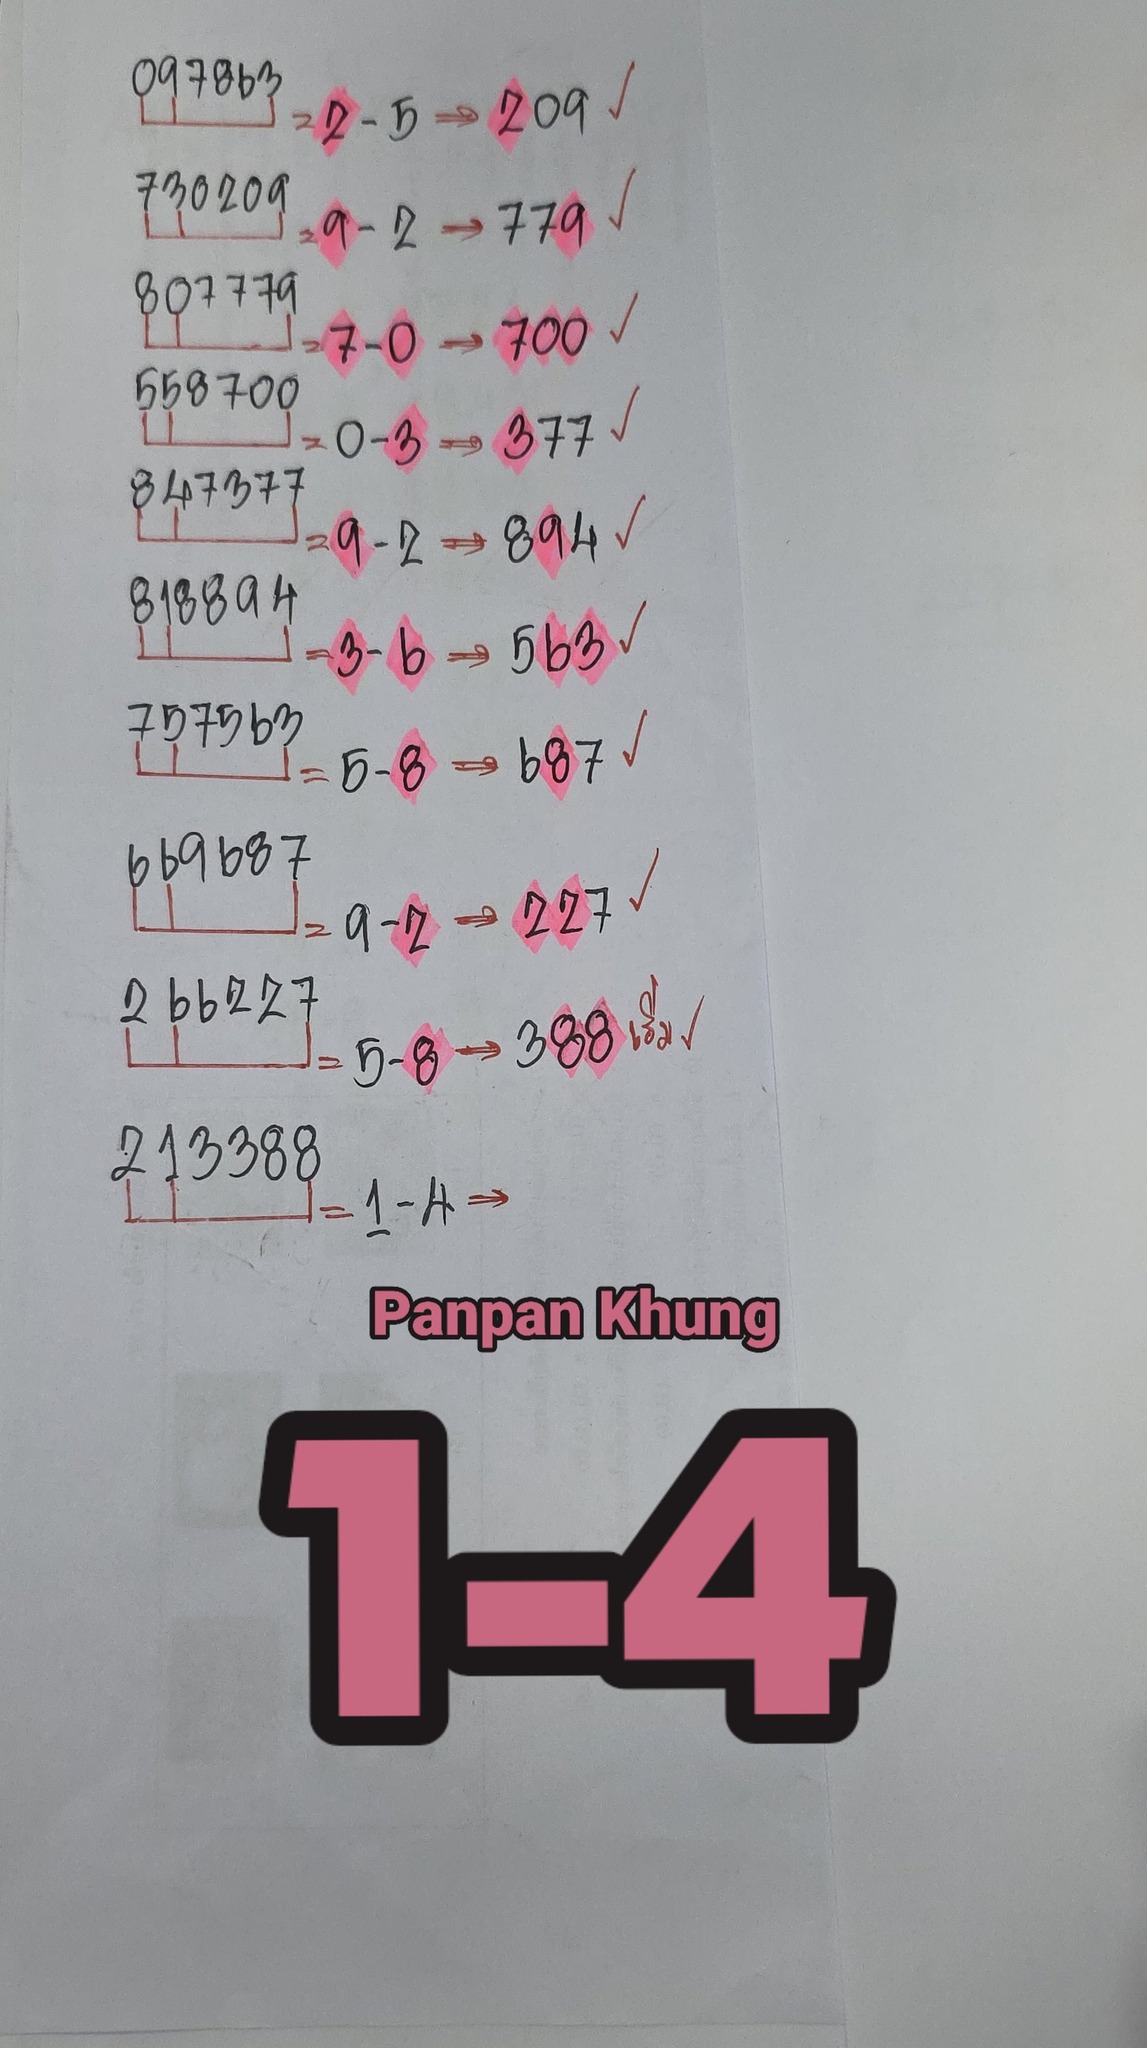 097863
= 2 - 5 ⇒ 209 ✓
730209
= 9 - 2 → 779 ✓
807779
= 7 - 0 → 700 ✓
558700
= 0 - 3 ⇒ 377 ✓
847377
= 9 - 2 ⇒ 894 ✓
818894
= 3 - 6 ⇒ 563 ✓
757563
= 5 - 8 ⇒ 687 ✓
669687
= 9 - 2 ⇒ 227 ✓
266227
= 5 - 8 → 388 ✓
213388
= 1 - 4 ⇒
Panpan Khung
1-4